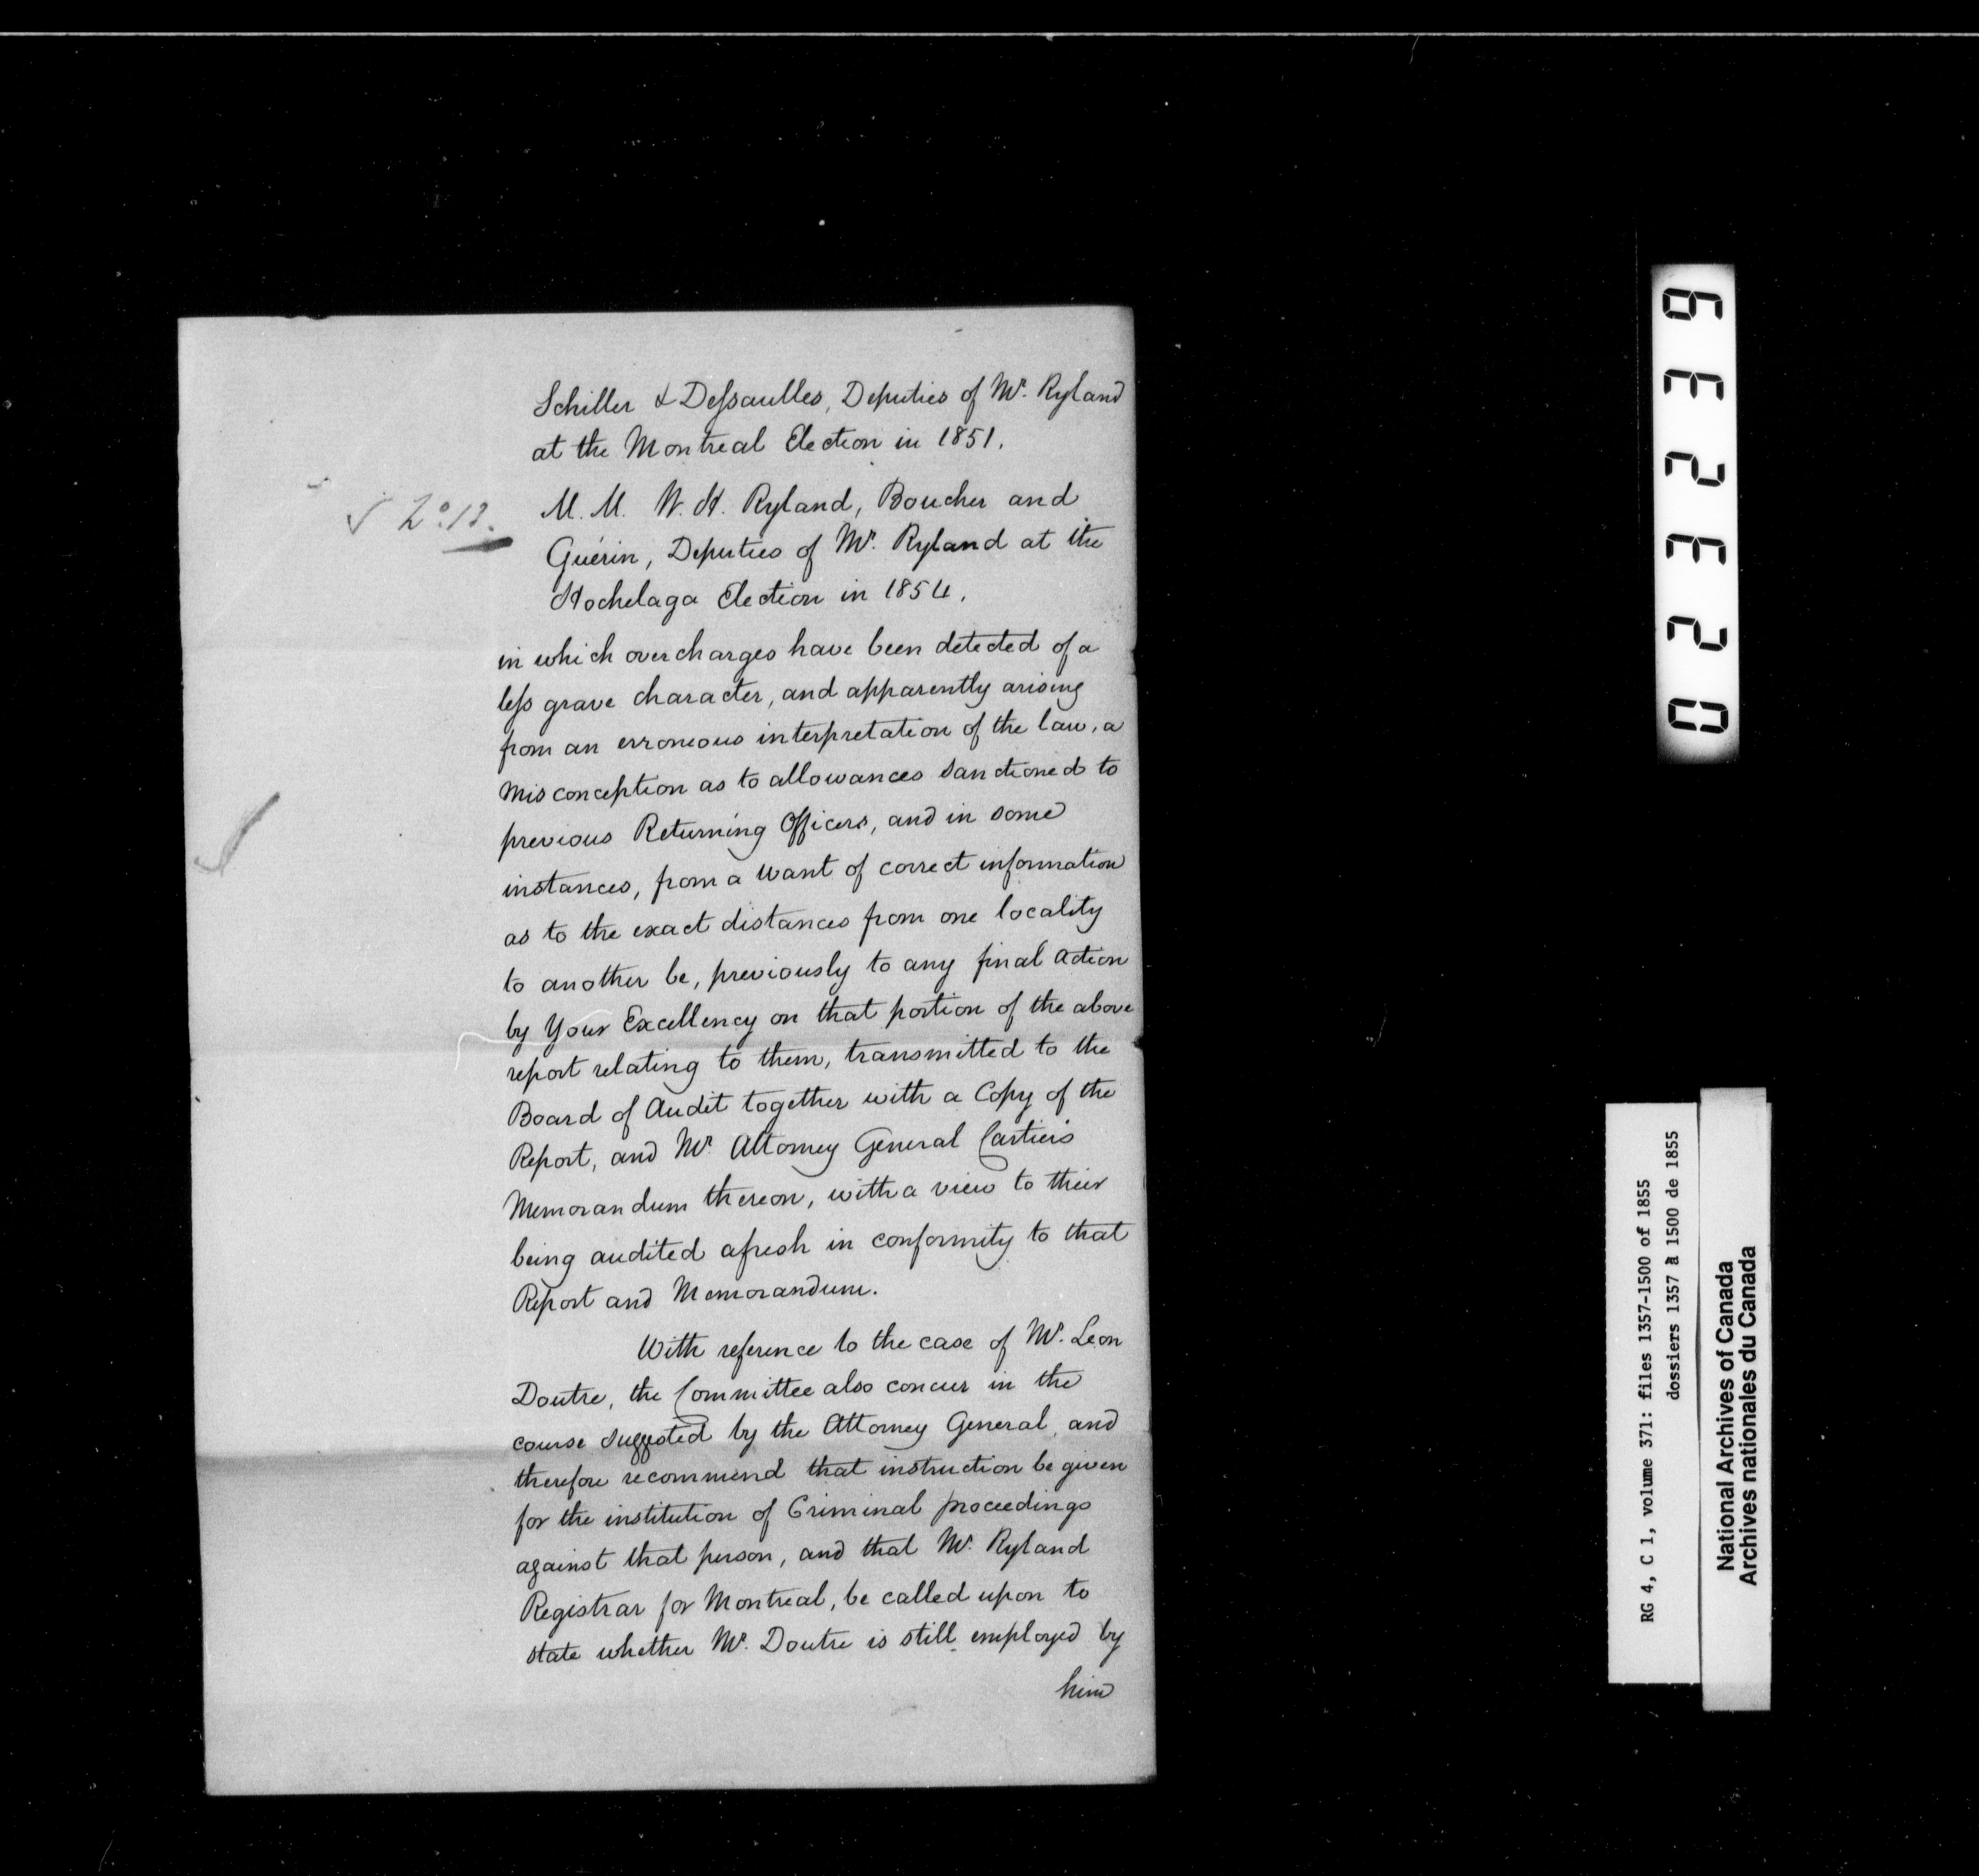 Schiller & Dessaulles, Deputies of Mr. Ryland
at the Montreal Election in 1851.
√ 2º.13.
M. M. W. H. Ryland, Boucher and
Guérin, Deputies of Mr. Ryland at the
Hochelaga Election in 1854.
in which overcharges have been detected of a
less grave character, and apparently arising
from an erroneous interpretation of the law, a
misconception as to allowances sanctioned to
previous Returning Officers, and in some
instances, from a want of correct information
as to the exact distances from one locality
to another be, previously to any final action
by Your Excellency on that portion of the above
report relating to them, transmitted to the
Board of Audit together with a Copy of the
Report, and Mr. Attorney General Cartier's
Memorandum thereon, with a view to their
being audited afresh in conformity to that
Report and Memorandum.
With reference to the case of Mr. Leon
Doutre, the Committee also concur in the
course suggested by the Attorney General, and
therefore recommend that instruction be given
for the institution of Criminal proceedings
against that person, and that Mr. Ryland
Registrar for Montreal, be called upon to
state whether Mr. Doutre is still employed by
him
023239
RG 4, C 1, volume 371: files 1357-1500 of 1855
dossiers 1357 à 1500 de 1855
National Archives of Canada
Archives nationales du Canada